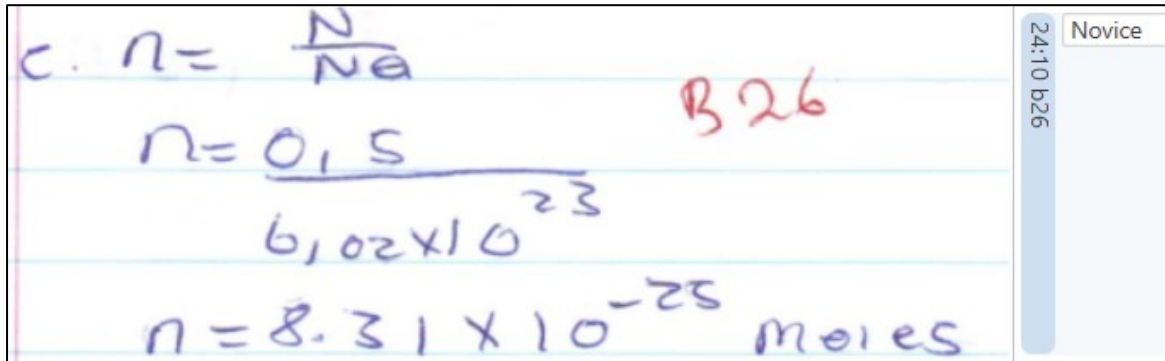 c. n = N / NA
B26
n = 0,5 / 6,02x10^23
n = 8.31 x 10^-25 moles
24:10 b26
Novice